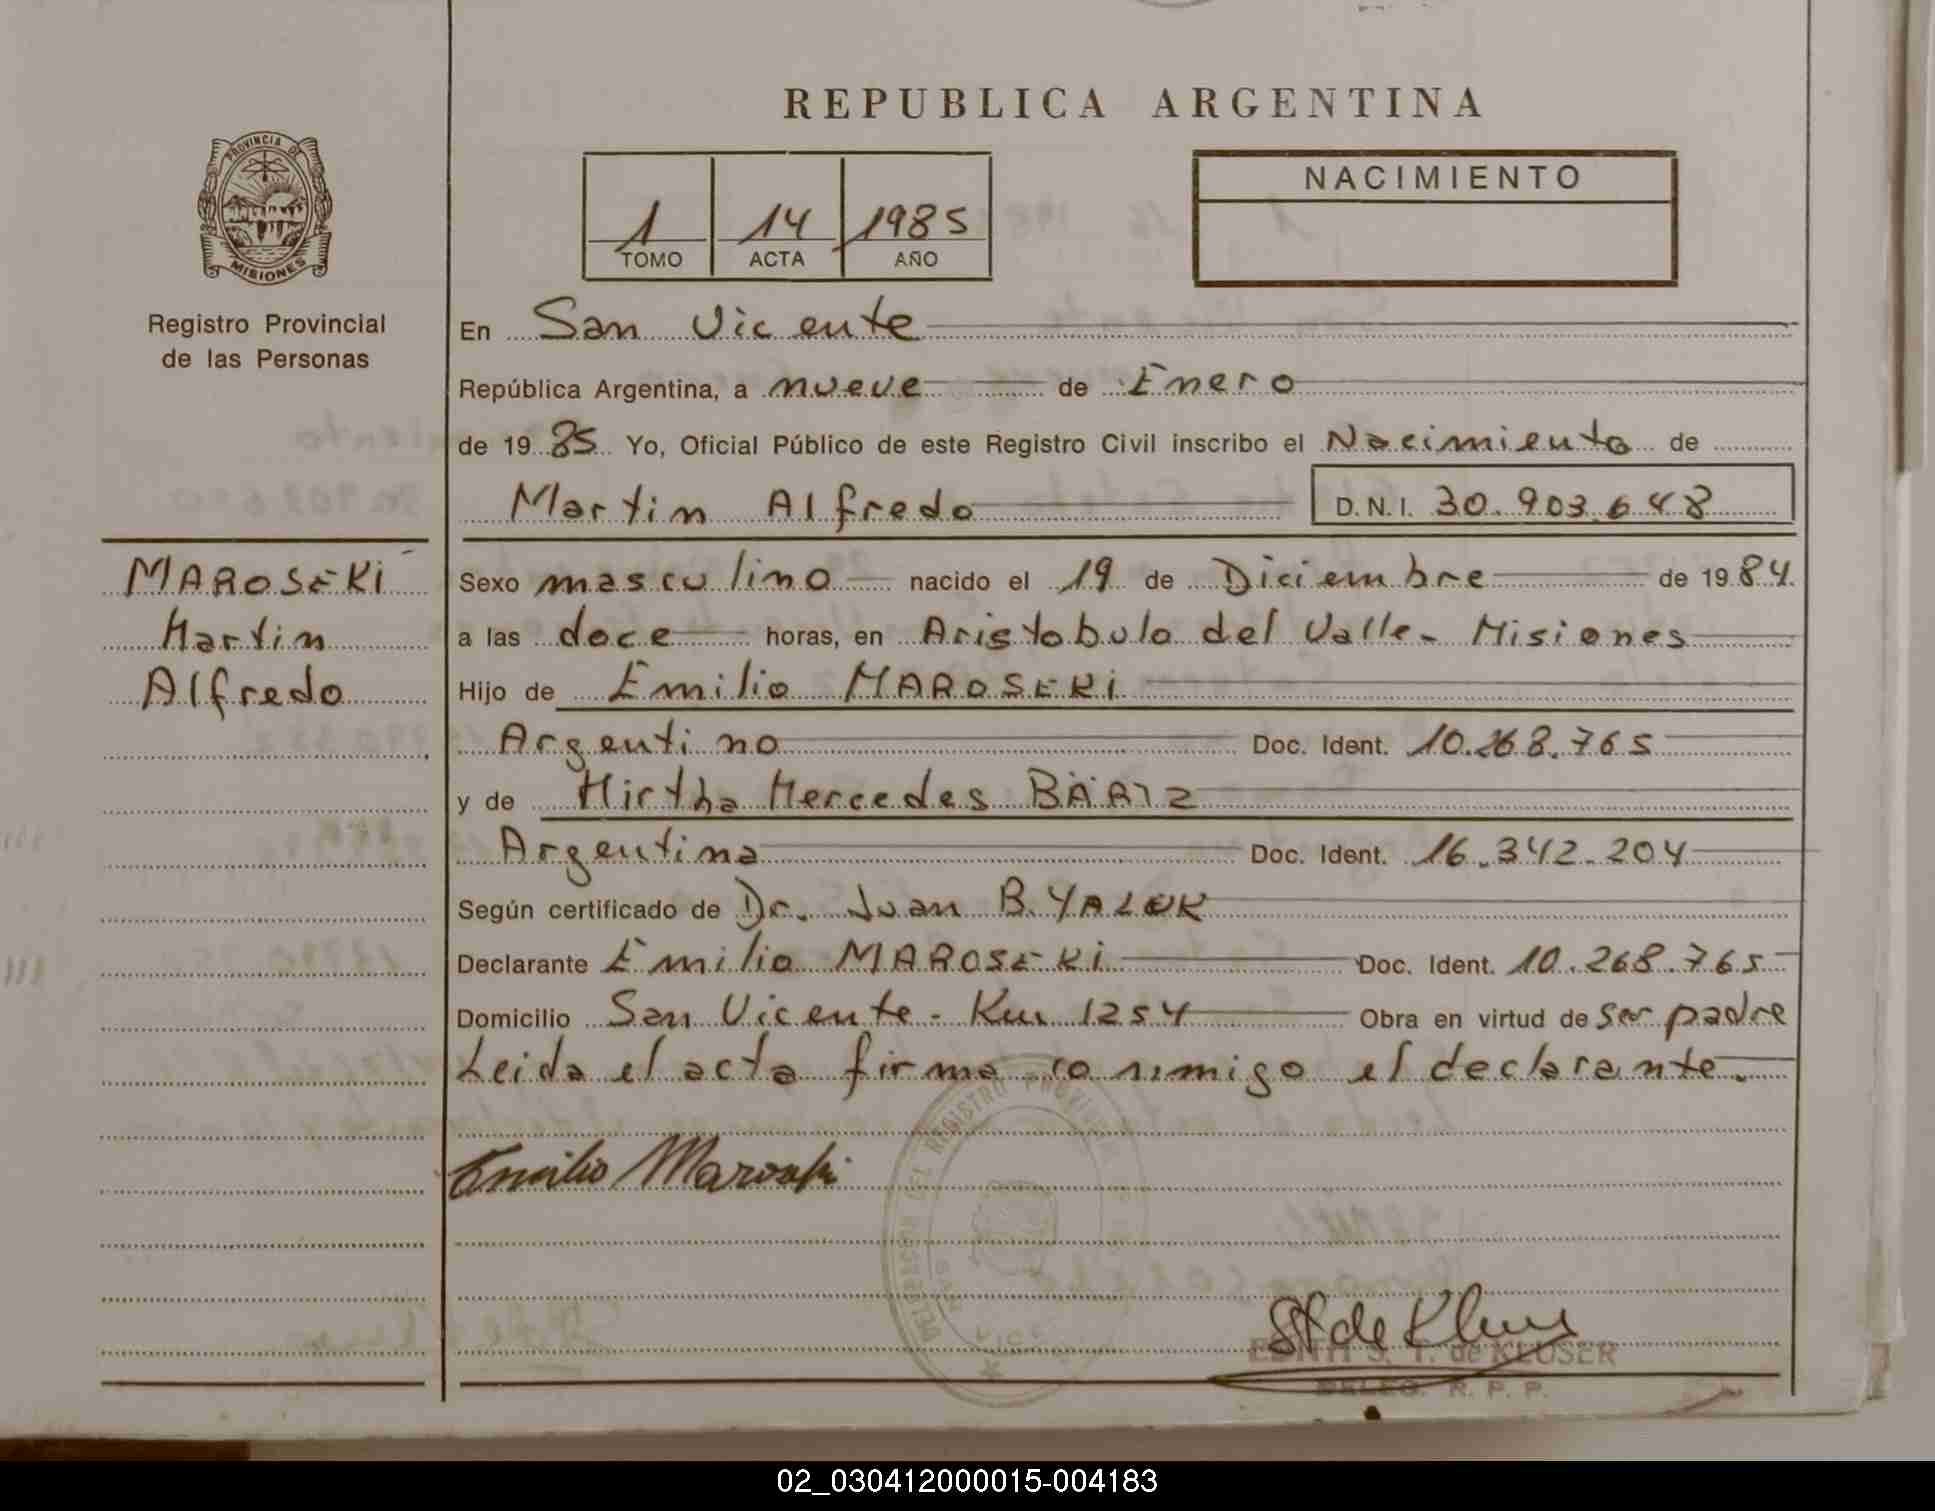 REPUBLICA ARGENTINA
PROVINCIA DE
MISIONES
Registro Provincial
de las Personas
1 14 1985
TOMO ACTA AÑO
NACIMIENTO
En San Vicente
República Argentina, a nueve de Enero
de 1985 Yo, Oficial Público de este Registro Civil inscribo el Nacimiento de
Martin Alfredo D.N.I. 30.903.648
MAROSEKI
Martin
Alfredo
Sexo masculino nacido el 19 de Diciembre de 1984.
a las doce horas, en Aristobulo del Valle - Misiones
Hijo de Emilio MAROSEKI
Argentino Doc. Ident. 10.268.765
y de Mirtha Mercedes
Argentina Doc. Ident. 16.342.204
Según certificado de Dr. Juan B. YALUK
Declarante Emilio MAROSEKI Doc. Ident. 10.268.765
Domicilio San Vicente - Km 1254 Obra en virtud de ser padre
Leida el acta firma conmigo el declarante.
Emilio Maroseki
EDITH S. T. de KLUSER
DELEG. R. P. P.
02_030412000015-004183